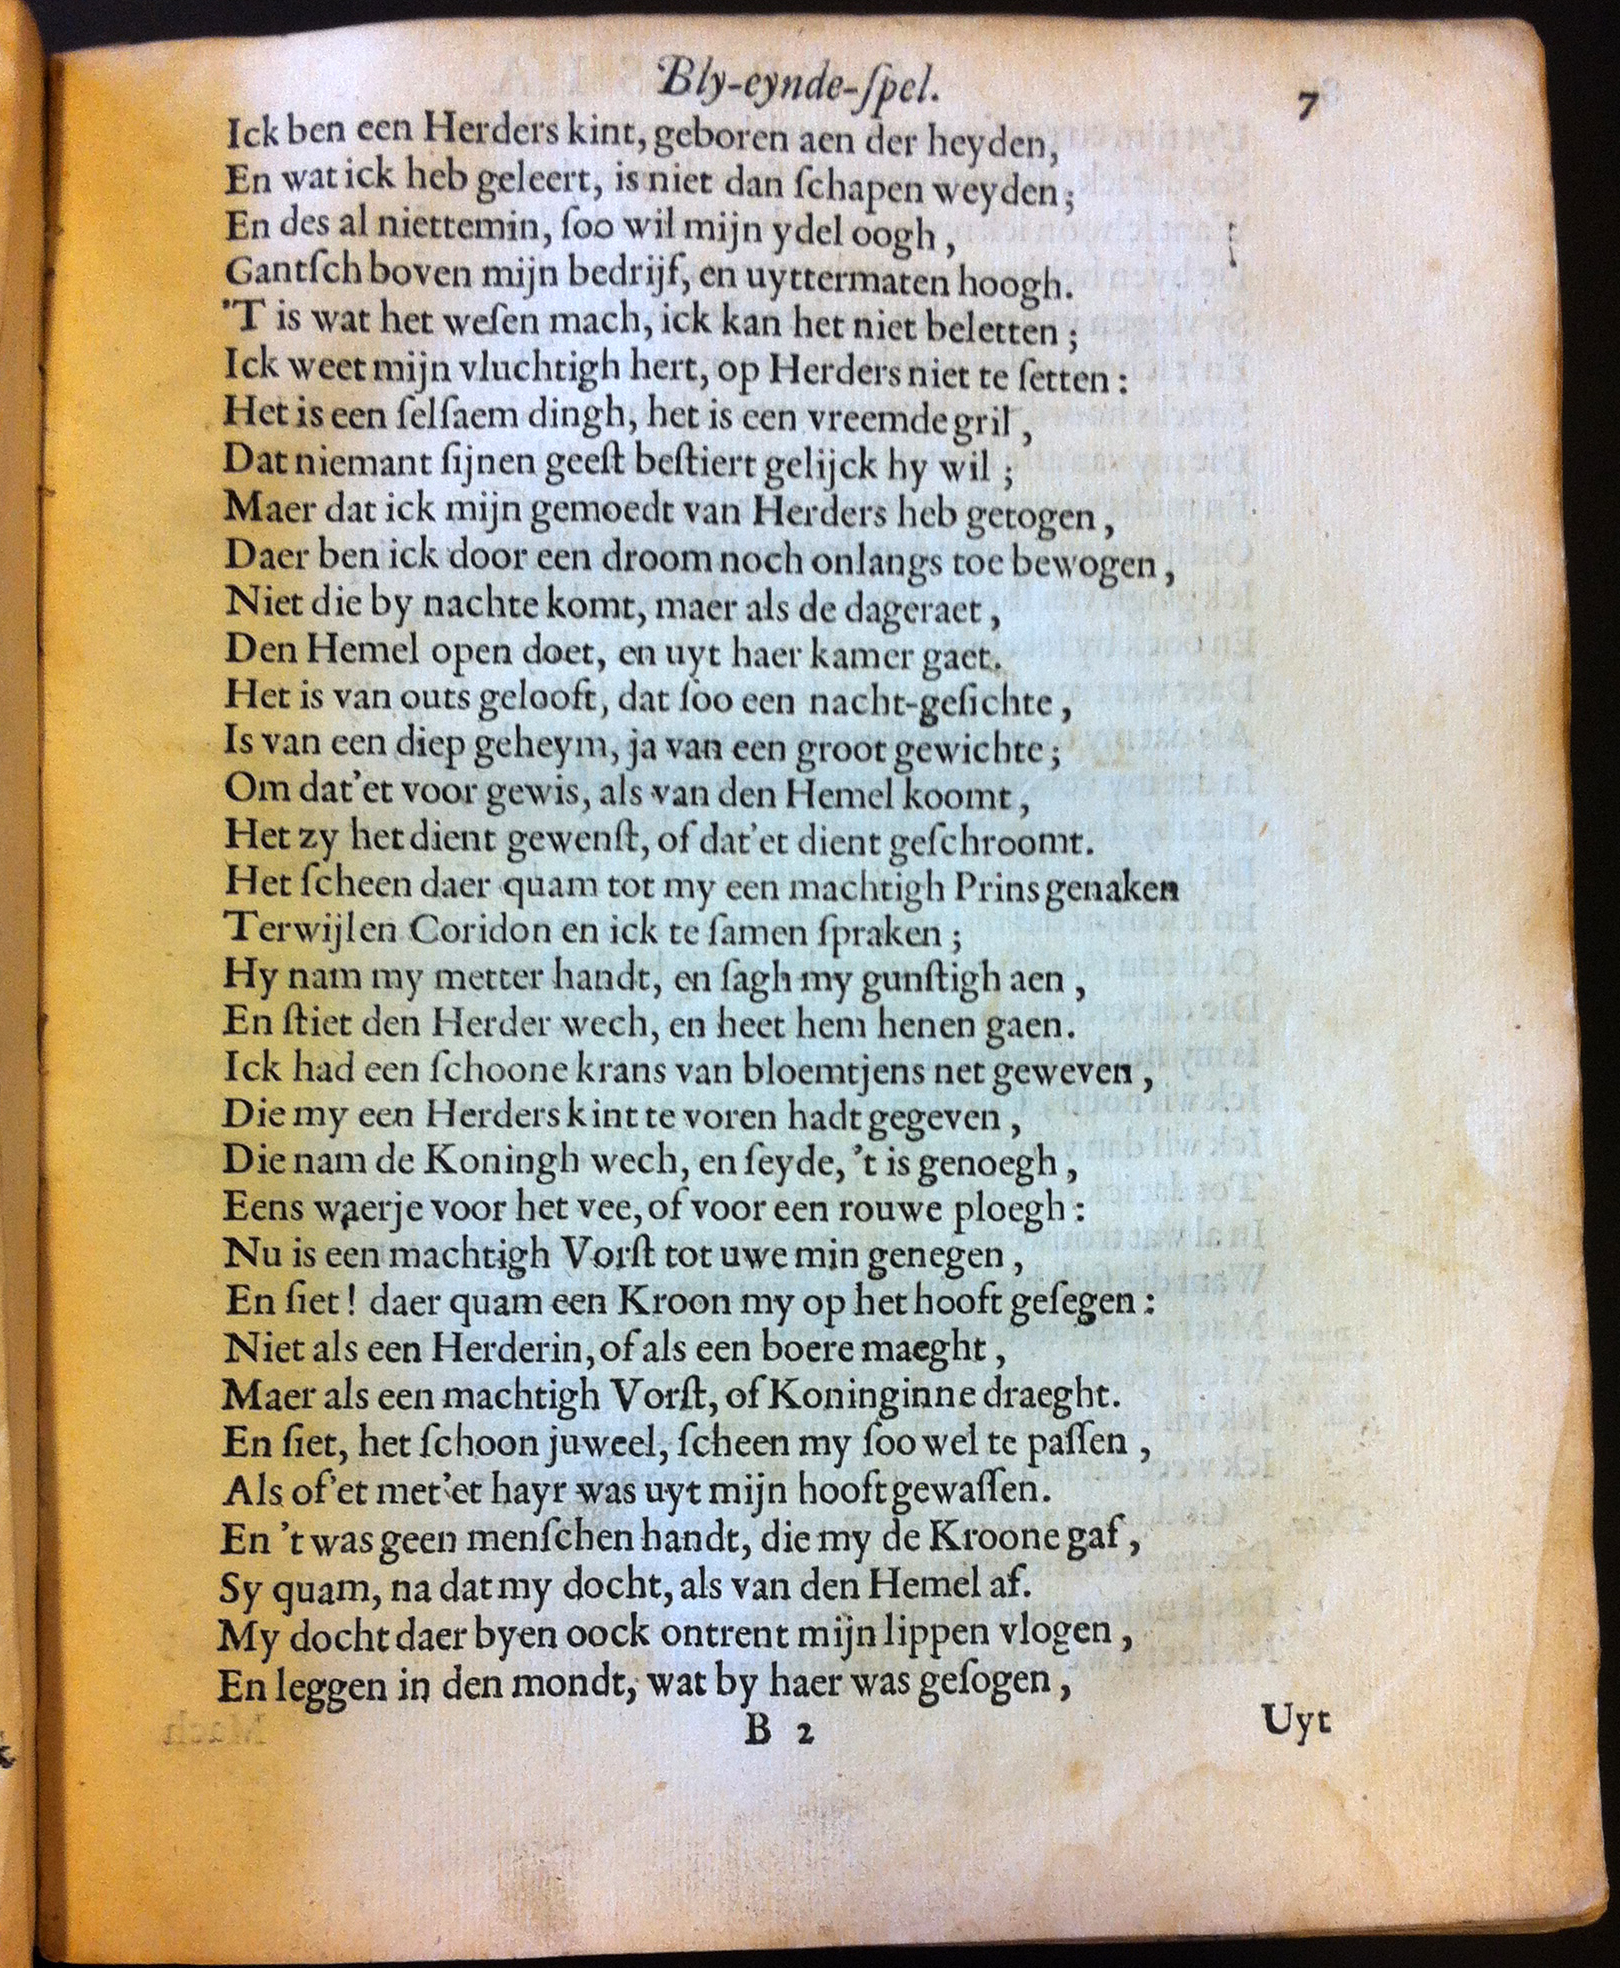 Bly-eynde-ſpel. 7
Ick ben een Herders kint, geboren aen der heyden,
En wat ick heb geleert, is niet dan ſchapen weyden;
En des al niettemin, ſoo wil mijn ydel oogh,
Gantſch boven mijn bedrijf, en uyttermaten hoogh.
'T is wat het weſen mach, ick kan het niet beletten;
Ick weet mijn vluchtigh hert, op Herders niet te ſetten:
Het is een ſelſaem dingh, het is een vreemde gril,
Dat niemant ſijnen geeſt beſtiert gelijck hy wil;
Maer dat ick mijn gemoedt van Herders heb getogen,
Daer ben ick door een droom noch onlangs toe bewogen,
Niet die by nachte komt, maer als de dageraet,
Den Hemel open doet, en uyt haer kamer gaet.
Het is van outs gelooft, dat ſoo een nacht-geſichte,
Is van een diep geheym, ja van een groot gewichte;
Om dat'et voor gewis, als van den Hemel koomt,
Het zy het dient gewenſt, of dat'et dient geſchroomt.
Het ſcheen daer quam tot my een machtigh Prins genaken
Terwijlen Coridon en ick te ſamen ſpraken;
Hy nam my metter handt, en ſagh my gunſtigh aen,
En ſtiet den Herder wech, en heet hem henen gaen.
Ick had een ſchoone krans van bloemtjens net geweven,
Die my een Herders kint te voren hadt gegeven,
Die nam de Koningh wech, en ſeyde, 't is genoegh,
Eens waerje voor het vee, of voor een rouwe ploegh:
Nu is een machtigh Vorſt tot uwe min genegen,
En ſiet! daer quam een Kroon my op het hooft geſegen:
Niet als een Herderin, of als een boere maeght,
Maer als een machtigh Vorſt, of Koninginne draeght.
En ſiet, het ſchoon juweel, ſcheen my ſoo wel te paſſen,
Als of'et met'et hayr was uyt mijn hooft gewaſſen.
En 't was geen menſchen handt, die my de Kroone gaf,
Sy quam, na dat my docht, als van den Hemel af.
My docht daer byen oock ontrent mijn lippen vlogen,
En leggen in den mondt, wat by haer was geſogen,
B 2 Uyt